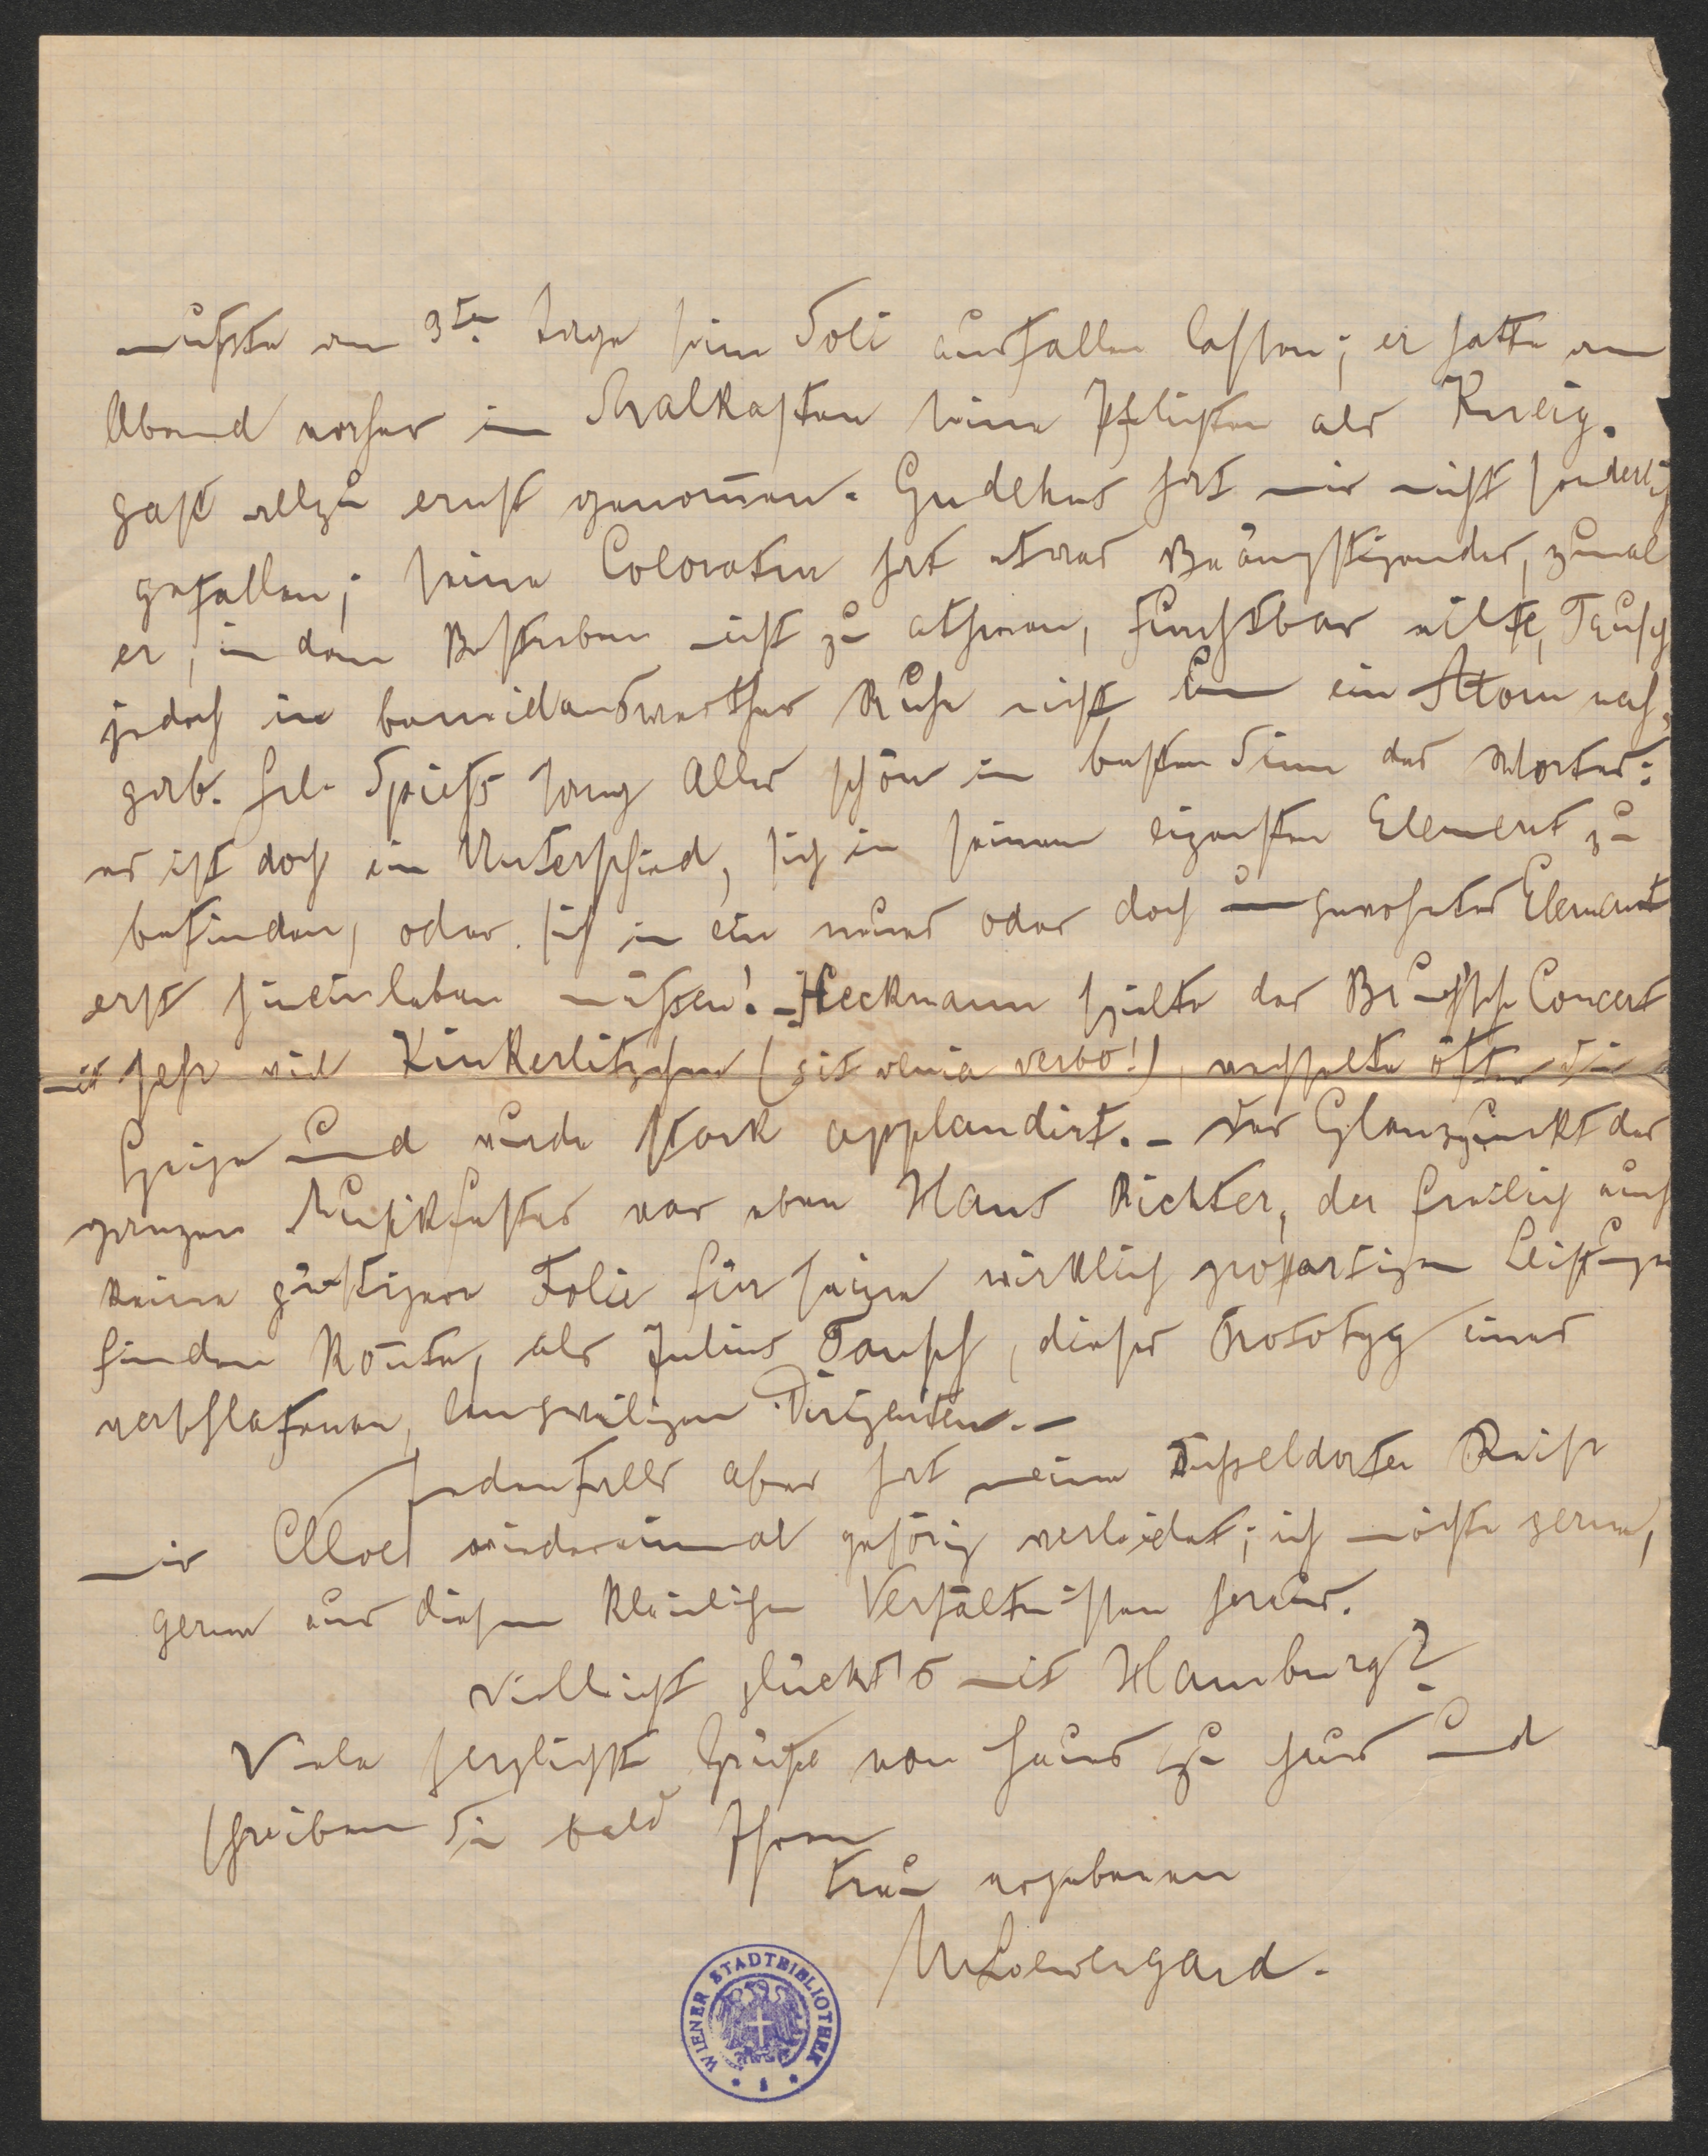 mußte am 3ten Tage seine Soli ausfallen lassen; er hatte am
Abend vorher im Malkasten seine Pflichten als Kneip-
gast allzu ernst genommen. Gudehus hat mir nicht sonderlich
gefallen; seine Coloratur hat etwas Beängstigendes, zumal
er, in dem Bestreben nicht zu athmen, furchtbar eilte, Tausch
jedoch in beneidenswerther Ruhe nicht um ein Atom nach-
gab. Frl. Spieß sang Alles schön im besten Sinn des Wortes:
es ist doch ein Unterschied, sich in seinem eigensten Element zu
befinden, oder sich in ein neues oder doch ungewohntes Element
erst hineinleben müssen! – Heckmann spielte das Bruch'sche Concert
mit sehr viel Kinkerlitzchen (sit venia verbo!), wechselte öfter die
Geige und wurde stark applaudirt. – Der Glanzpunkt des
ganzen Musikfestes war eben Hans Richter, der freilich auch
keine günstigere Folie für seine wirklich großartigen Leistungen
finden konnte, als Julius Tausch, dieser Prototyp eines
verschlafenen, langweiligen Dirigenten. –
Jedenfalls aber hat meine Düsseldorfer Reise
mir Alles wiedereinmal gehörig verleidet; ich möchte gerne,
gerne aus diesen kleinlichen Verhältnissen heraus.
Vielleicht glückt's mit Hamburg?
Viele herzlichste Grüße von Haus zu Haus und
schreiben Sie bald Ihrem
treu ergebenen
MLoewengard.
WIENER STADTBIBLIOTHEK